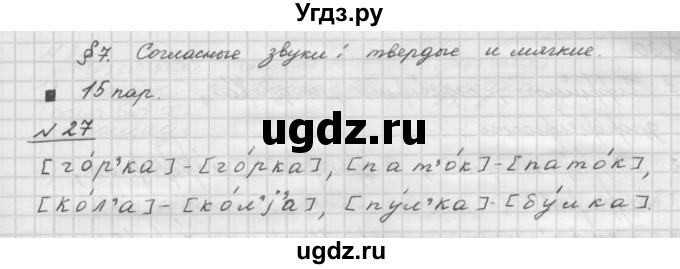 Угдз.ру
§ 7. Согласные звуки: твердые и мягкие.
15 пар.
№ 27
[го́р’ка] - [го́рка], [пат’о́к] - [пато́к],
[ко́л’а] - [ко́л’j’а], [пу́л’ка] - [бу́лка].
ugdz.ru
ugdz.ru